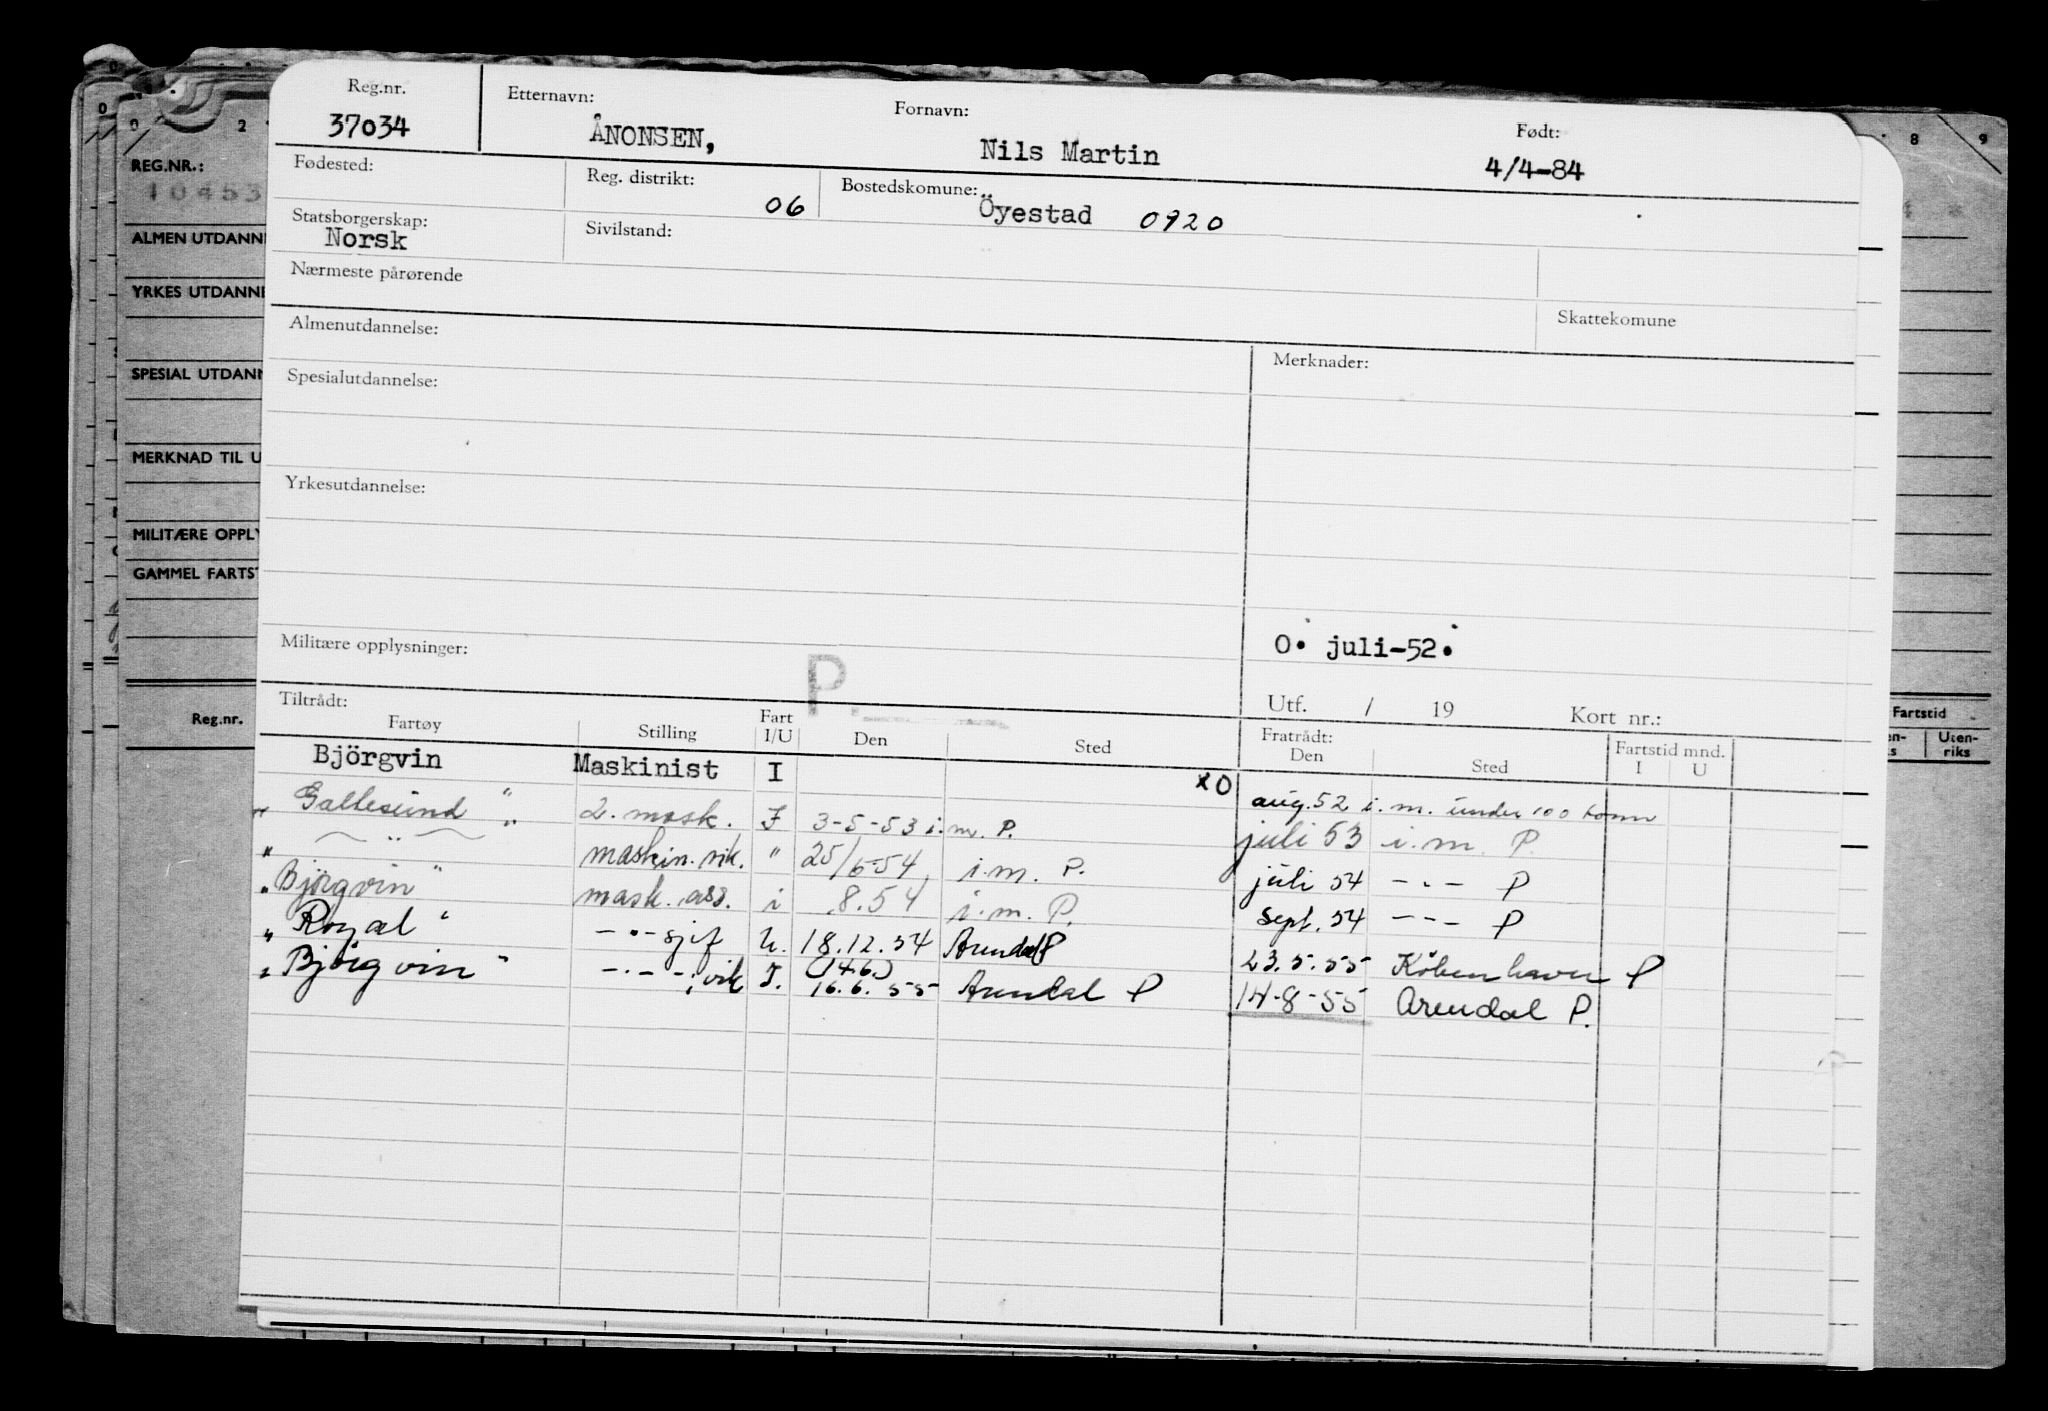 Reg.nr. Etternavn: Fornavn: Født:
37034 ÅNONSEN, Nils Martin 4/4-84
Fødested: Reg. distrikt: 06 Bostedskomune: Öyestad 0920
Statsborgerskap: Norsk Sivilstand:
Nærmeste pårørende
Almenutdannelse: Skattekomune
Merknader:
Spesialutdannelse:
Yrkesutdannelse:
Militære opplysninger: P. O. juli-52.
Utf. / 19 Kort nr.:
Tiltrådt: Fratrådt:
Fartøy Stilling Fart I/U Den Sted Den Sted Fartstid mnd. I U
Björgvin Maskinist I xO aug. 52 i. m. under 100 tonn
" Gallesund " 2. mask. I 3-5-53 i.m. P. juli 53 i.m. P.
" — " — " maskin. vik. " 25/6-54 i.m. P. juli 54 -"- P
" Björgvin " mask. ass. i 8.54 i.m. P. sept. 54 --- P
" Royal " -"- sjef U. 18.12.54 Arendal P 23.5.55 Köbenhavn P
" Björgvin " -"- vik I. (14.6.) 16.6.55 Arendal P 14-8-55 Arendal P.
0 2 8 9
REG.NR.:
10453
ALMEN UTDANNE
YRKES UTDANNE
SPESIAL UTDANN
MERKNAD TIL U
MILITÆRE OPPLY
GAMMEL FARTST
Reg.nr.
Fartstid
en-s Uten-riks